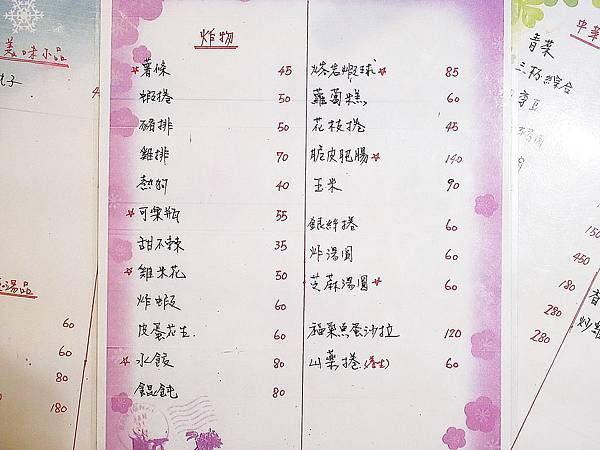 美味小品
湯品
60
60
80
180
炸物
*薯條 45
蝦捲 50
豬排 50
雞排 70
熱狗 40
*可樂瓶 55
甜不辣 35
*雞米花 50
炸蝦 60
皮蛋花生 60
*水餃 80
餛飩 80
蝦球* 85
蘿蔔糕 60
花枝捲 45
脆皮肥腸* 140
玉米 90
銀絲捲 60
炸湯圓 60
芝蔴湯圓* 60
蛋沙拉 120
山藥捲(養生) 60
中華
青菜
三杯綜合
150
450
180
280
280